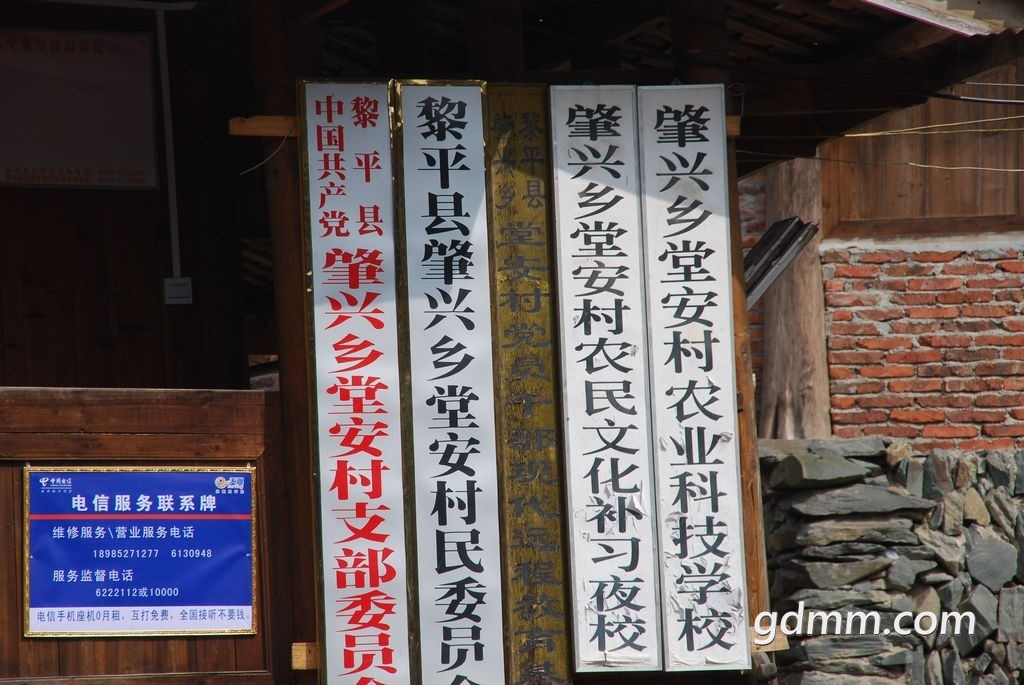 中国共产党
黎平县
肇兴乡堂安村支部委员会
黎平县肇兴乡堂安村民委员会
黎平县
肇兴乡
堂安村党员干部现代远程教育
肇兴乡堂安村农民文化补习夜校
肇兴乡堂安村农业科技学校
中国电信
电信服务联系牌
维修服务\营业服务电话
18985271277 6130948
服务监督电话
6222112或10000
电信手机座机0月租，互打免费，全国接听不要钱。
gdmm.com